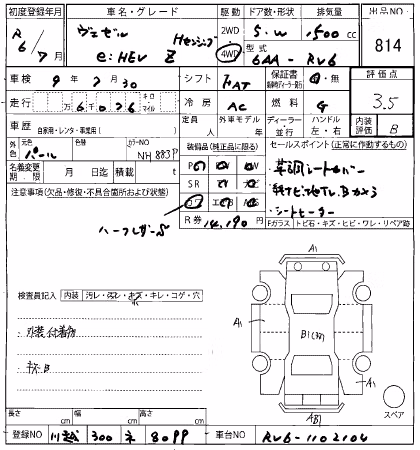 初度登録年月 車名・グレード 駆動 ドア数・形状 排気量 出品NO
R6/7月 ヴェゼル e:HEV Z Hセンシング 2WD 4WD 5.W 1,500cc 814
型式 6AA-RV6
車検 9年7月30 シフト FAT 保証書 有・無 評価点
走行 万6千076 キロ マイル 冷房 AC 燃料 G 3.5
車歴 自家用・レンタ・事業用( ) 定員 人 外車モデル 年 ディーラー 並行 ハンドル 左・右 内装評価 B
外色 元色 パール 色替 カラーNO NH883P 装備品(純正品に限る) セールスポイント(正常に作動するもの)
名義変更期限 月 日迄 積載 t
革調シートカバー
純ナビ地TV.Bカメラ
シートヒーター
注意事項(欠品・修復・不具合箇所および状態)
ハーフレザーS
R券 14,190 ¥
Fガラス トビ石・キズ・ヒビ・ワレ・リペア跡
検査員記入 内装 汚レ・スレ・キズ・キレ・コゲ・穴
内装付着物
キズB
A1
A1
B1(天)
A1
AB1
スペア
長さ cm 幅 cm 高さ cm
登録NO 川越 300 ネ 8099 車台NO RV6-1102104